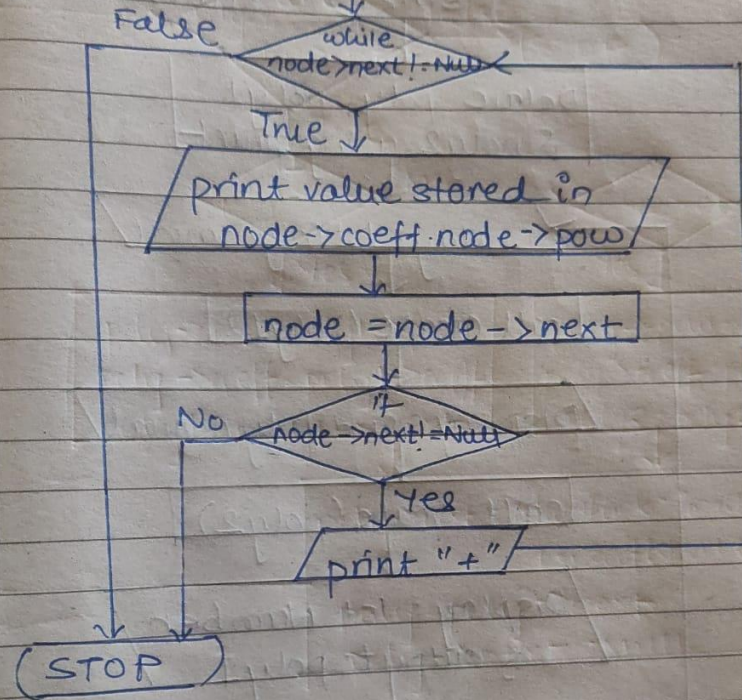 False
while
node>next!=Null
True
print value stored in
node->coeff.node->pow
node = node -> next
if
No
node ->next!=Null
Yes
print "+"
STOP